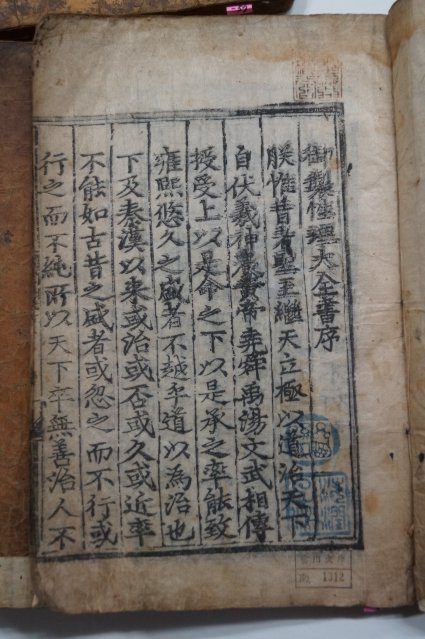 御製性理大全書序
朕惟昔者聖王繼天立極以道治天下
自伏羲神農黃帝堯舜禹湯文武相傳
授受上以是命之下以是承之率能致
雍熙悠久之盛者不越乎道以為治也
下及秦漢以来或治或否或久或近率
不能如古昔之盛者或忽之而不行或
行之而不純所以天下卒無善治人不
1312